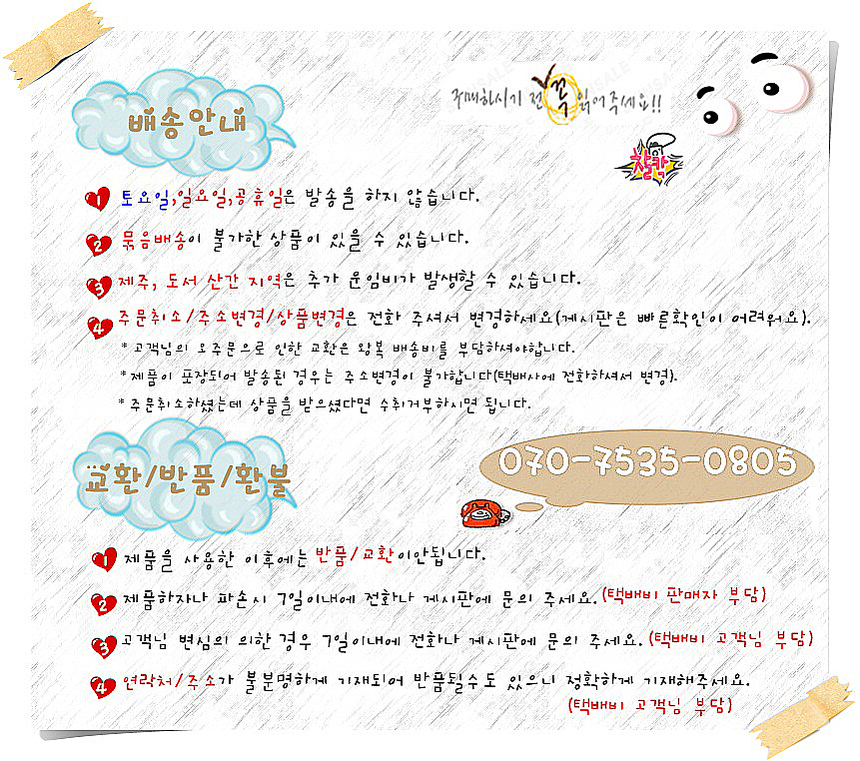 배송안내
구매하시기 전 꼭 읽어주세요!!
찰칵
1 토요일,일요일,공휴일은 발송을 하지 않습니다.
2 묶음배송이 불가한 상품이 있을 수 있습니다.
3 제주, 도서 산간 지역은 추가 운임비가 발생할 수 있습니다.
4 주문취소/주소변경/상품변경은 전화 주셔서 변경하세요(게시판은 빠른확인이 어려워요).
* 고객님의 오주문으로 인한 교환은 왕복 배송비를 부담하셔야합니다.
* 제품이 포장되어 발송된 경우는 주소변경이 불가합니다(택배사에 전화하셔서 변경).
* 주문취소하셨는데 상품을 받으셨다면 수취거부하시면 됩니다.
교환/반품/환불
070-7535-0805
1 제품을 사용한 이후에는 반품/교환이안됩니다.
2 제품하자나 파손시 7일이내에 전화나 게시판에 문의 주세요.(택배비 판매자 부담)
3 고객님 변심의 의한 경우 7일이내에 전화나 게시판에 문의 주세요. (택배비 고객님 부담)
4 연락처/주소가 불분명하게 기재되어 반품될수도 있으니 정확하게 기재해주세요.
(택배비 고객님 부담)